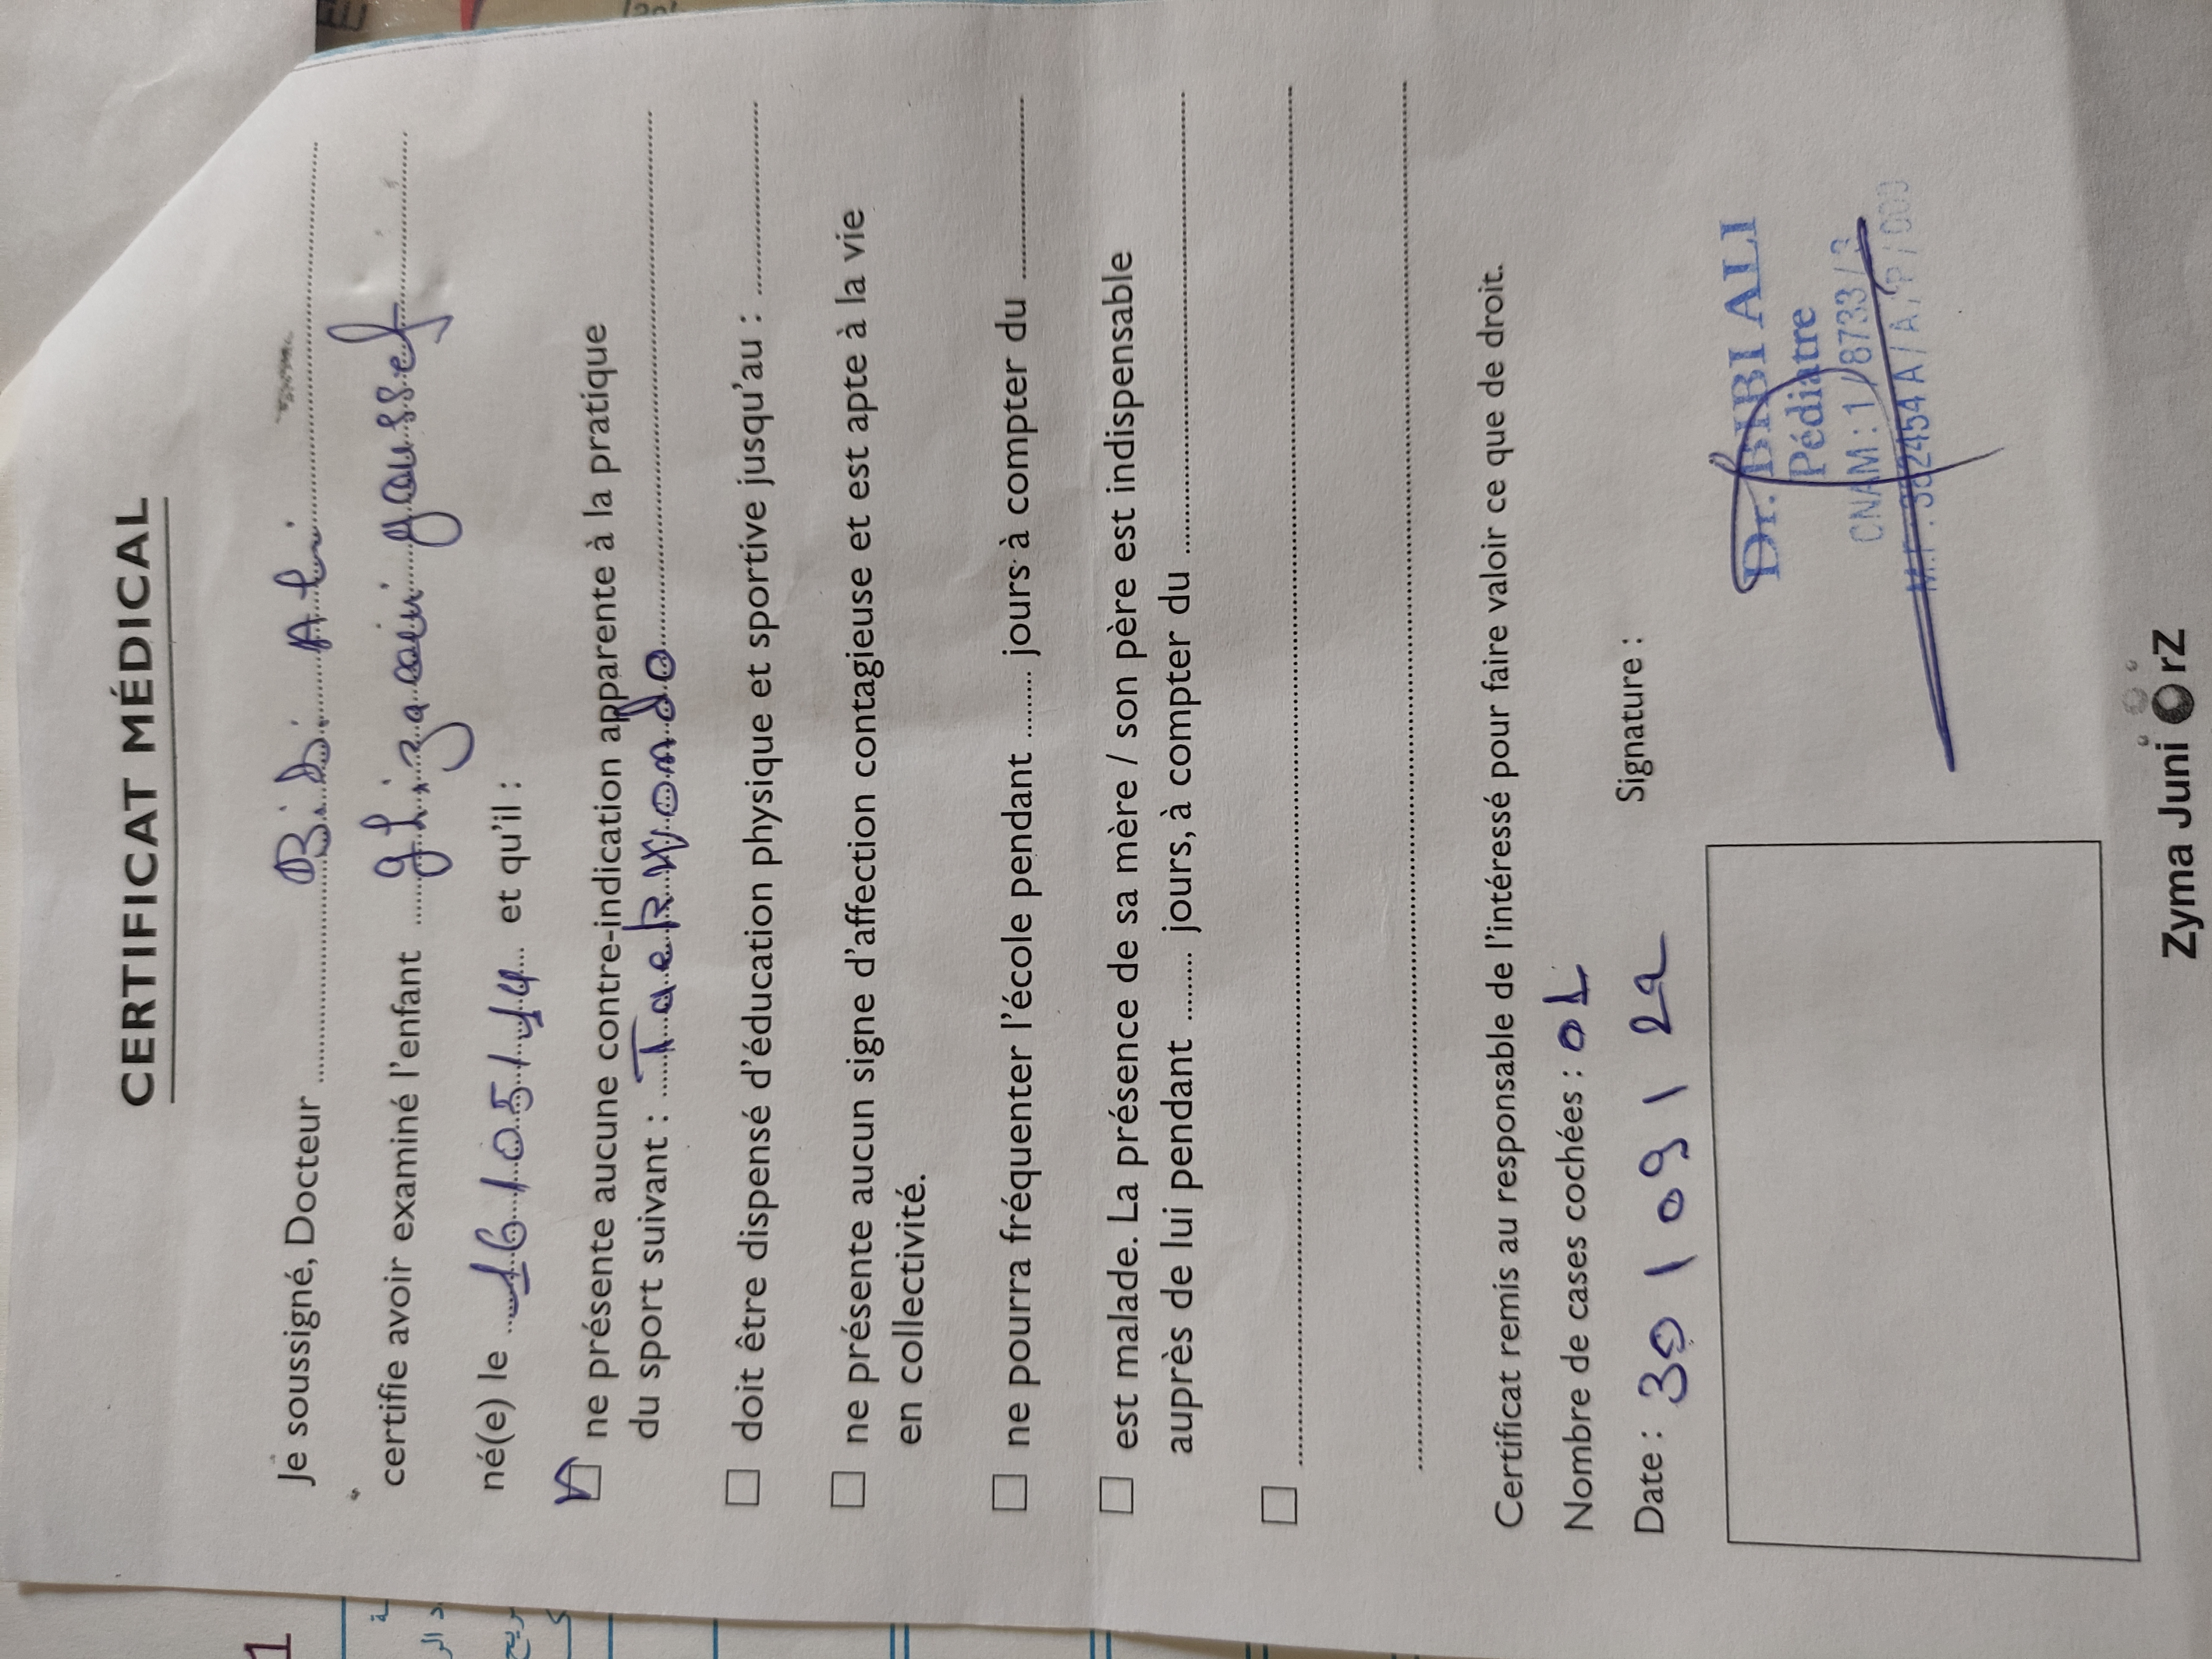 CERTIFICAT MÉDICAL
Je soussigné, Docteur Bibi Ali
certifie avoir examiné l'enfant ghizaoui youssef
né(e) le 16/05/14 et qu'il :
ne présente aucune contre-indication apparente à la pratique
du sport suivant : Taekwondo
doit être dispensé d'éducation physique et sportive jusqu'au :
ne présente aucun signe d'affection contagieuse et est apte à la vie
en collectivité.
ne pourra fréquenter l'école pendant jours à compter du
est malade. La présence de sa mère / son père est indispensable
auprès de lui pendant jours, à compter du
Certificat remis au responsable de l'intéressé pour faire valoir ce que de droit.
Nombre de cases cochées : 01
Date : 30 / 09 / 22
Signature :
Dr. BIBI ALI
Pédiatre
CNAM : 1/8733/3
Zyma JuniOrZ